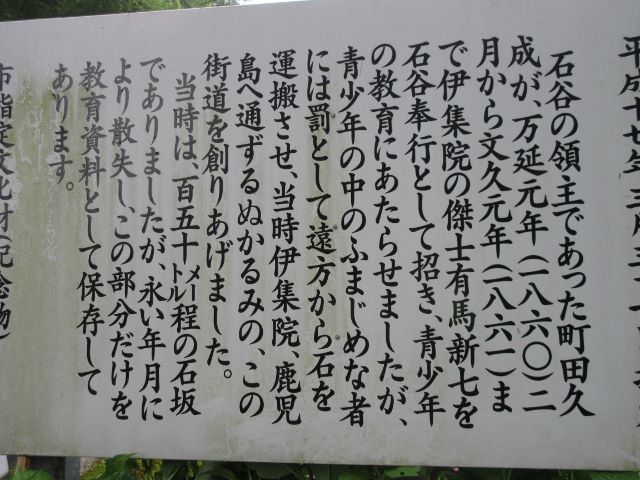 平成十七年三月三十
石谷の領主であった町田久
成が、万延元年(一八六〇)二
月から文久元年(一八六一)ま
で伊集院の傑士有馬新七を
石谷奉行として招き、青少年
の教育にあたらせましたが、
青少年の中のふまじめな者
には罰として遠方から石を
運搬させ、当時伊集院、鹿児
島へ通ずるぬかるみの、この
街道を創りあげました。
当時は、百五十メートル程の石坂
でありましたが、永い年月に
より散失し、この部分だけを
教育資料として保存して
あります。
市指定文化財(記念物)